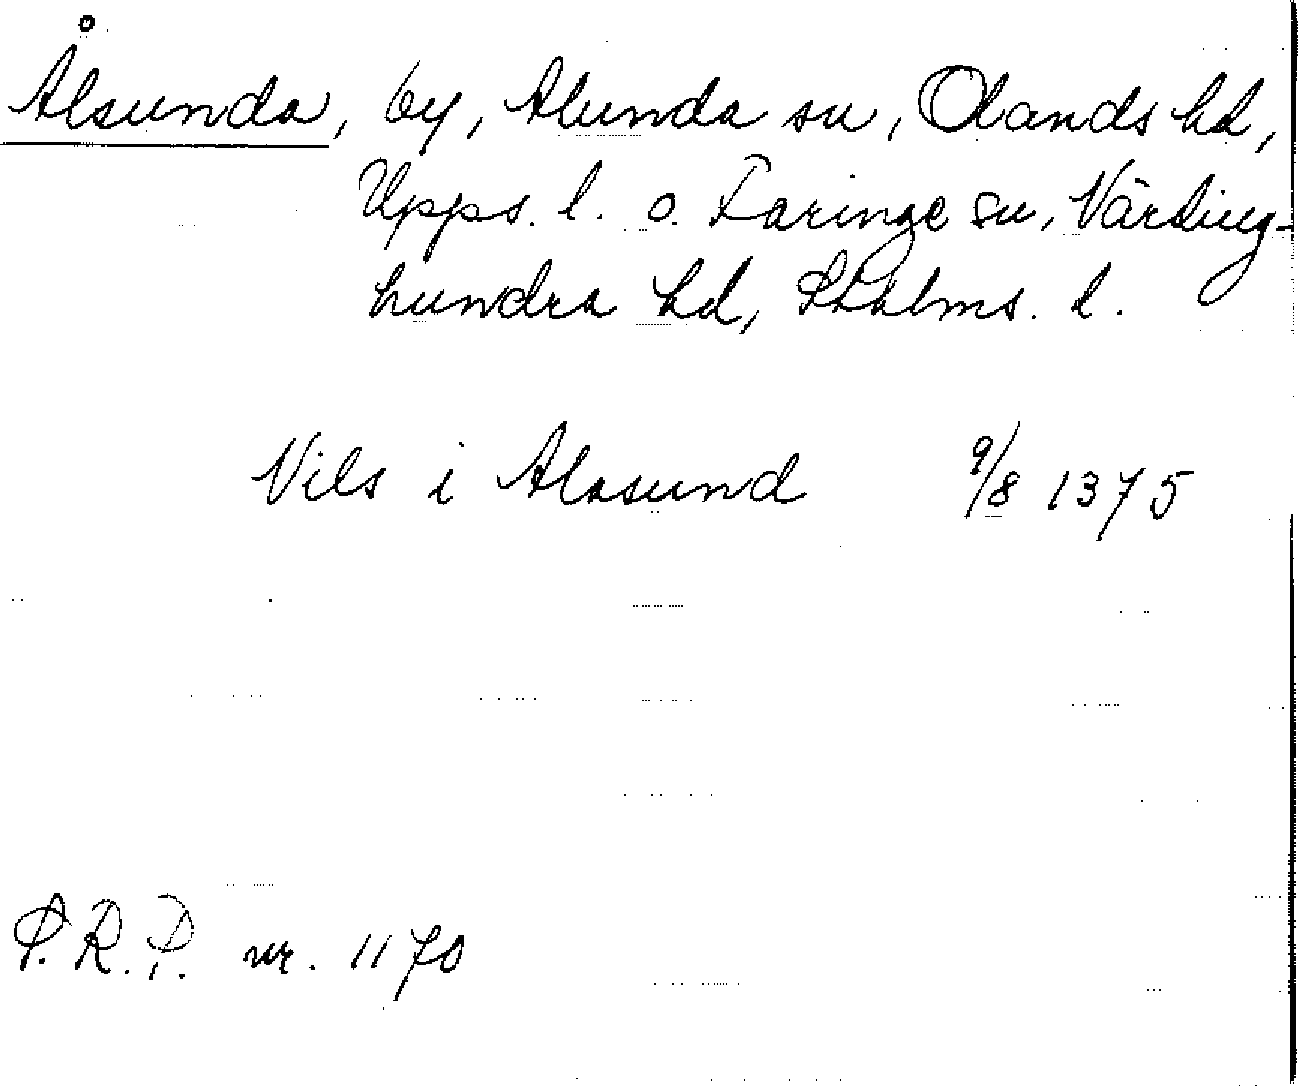 Ålsunda, by, Alunda sn, Olands hd,
Upps. l. o. Faringe sn, Närding-
hundra hd, Sthlms. l.
Nils i Alasund 9/8 1375
S.R.P. nr. 1170